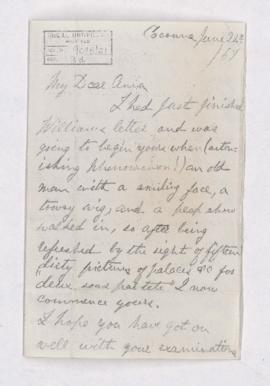 Cacouna June 24th
/67
9096/21
My Dear Anna
I had just finished
William's letter and was
going to begin yours when (aston-
ishing phenomenon!) an old
man with a smiling face, a
frowsy wig, and a peep show
walked in, so after being
refreshed by the sight of fifteen
"dirty pictures of palaces &c for
deux sous par tete" I now
commence yours.
I hope you have got on
well with your examinations